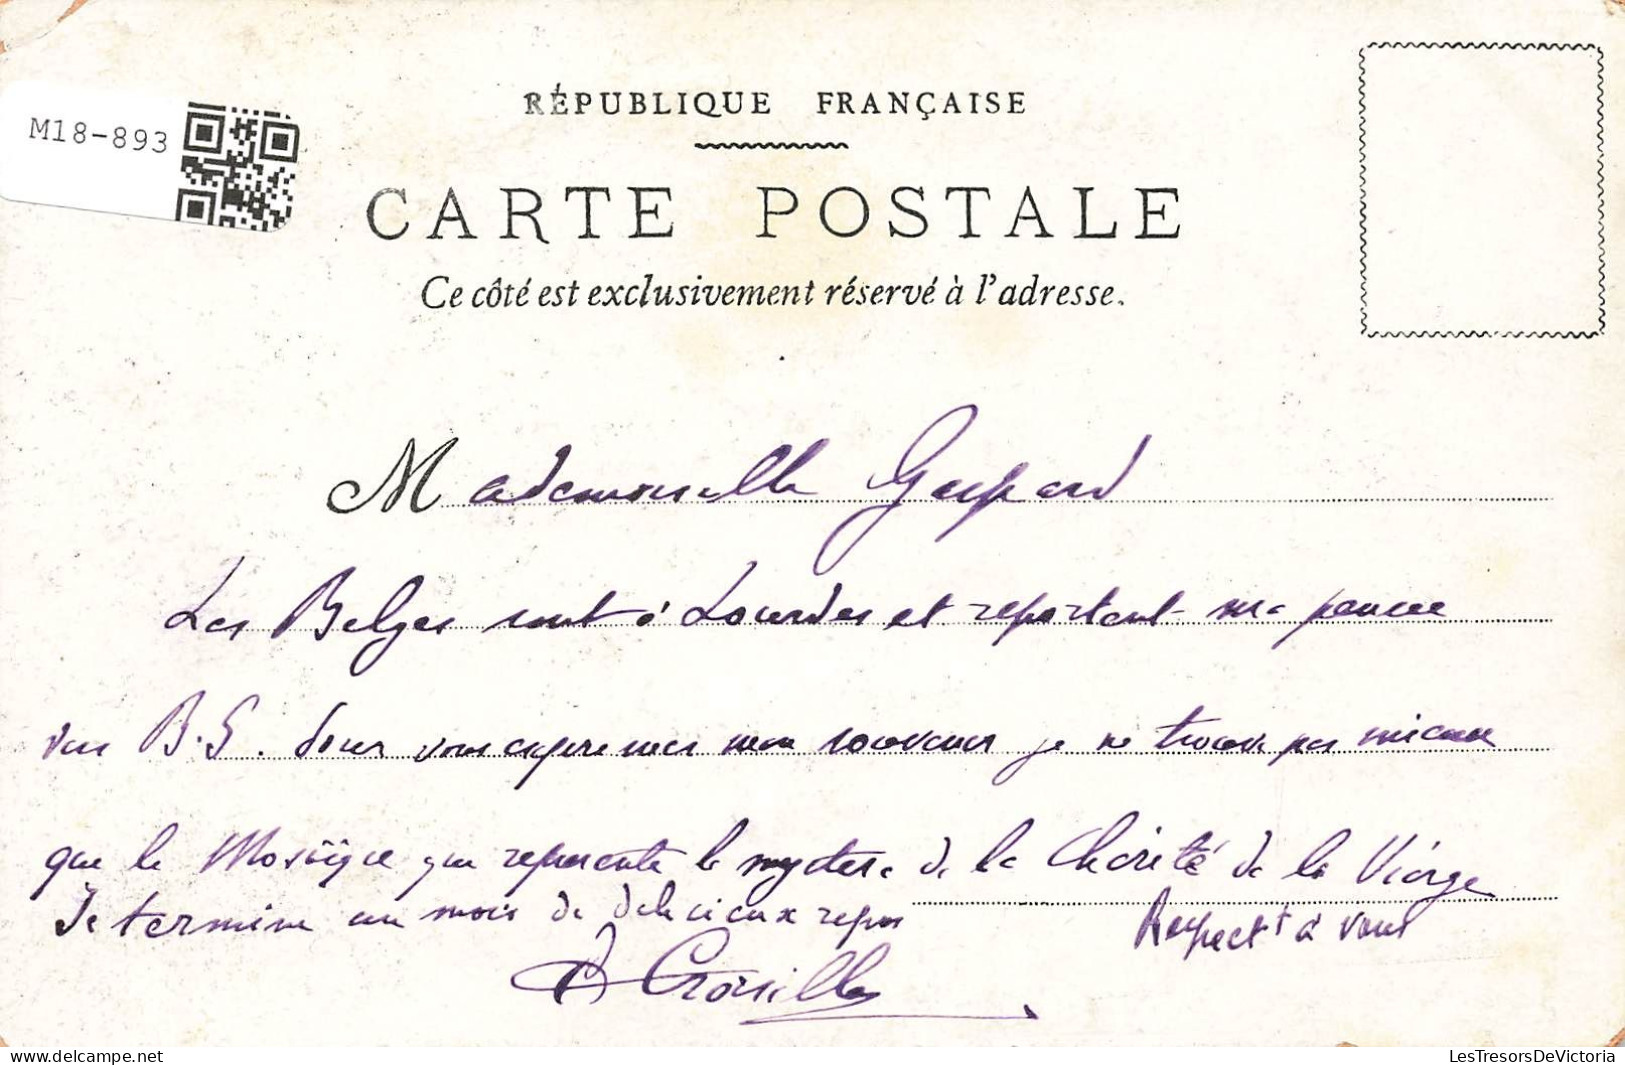 M18-893
RÉPUBLIQUE FRANÇAISE
CARTE POSTALE
Ce côté est exclusivement réservé à l'adresse.
Mademoiselle Gaspard
Les Belges sont à Lourdes et reportent ma pensée
vers B.S. Pour vous exprimer mon souvenir je ne trouve pas mieux
que la Mosaïque qui represente le mystere de la Charité de la Vierge
Je termine un mois de delicieux repos
Respect^t à vous